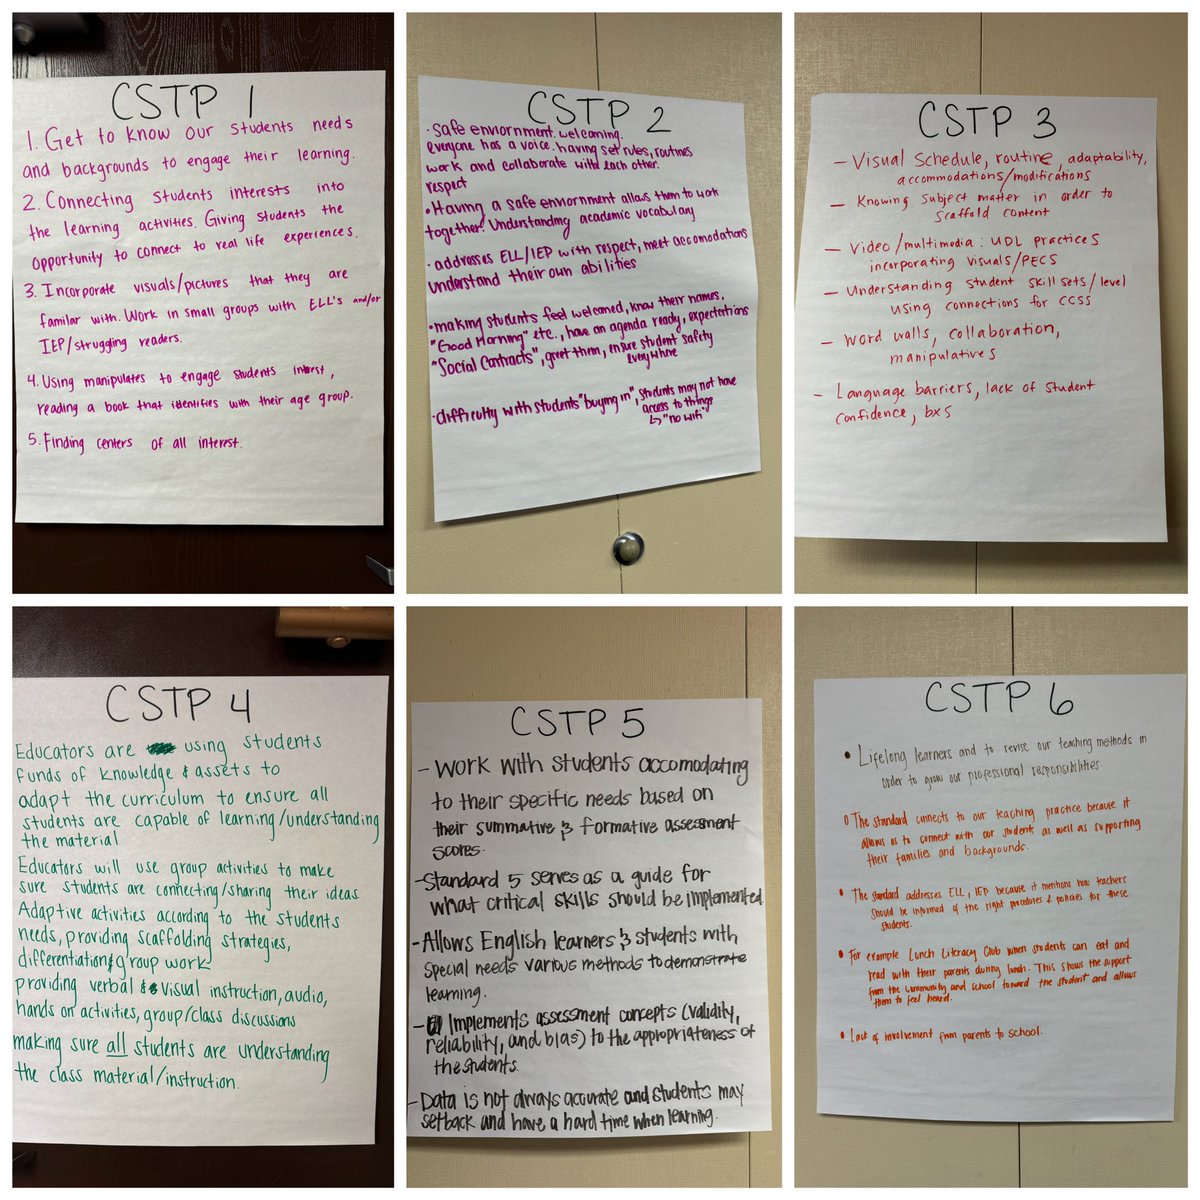 CSTP 1
1. Get to know our students needs
and backgrounds to engage their learning.
2. Connecting students interests into
the learning activities. Giving students the
opportunity to connect to real life experiences.
3. Incorporate visuals/pictures that they are
familar with. Work in small groups with ELL's and/or
IEP/struggling readers.
4. Using manipulates to engage students interest,
reading a book that identifies with their age group.
5. Finding centers of all interest.
CSTP 2
· safe enviornment. welcoming.
everyone has a voice. having set rules, routines
work and collaborate with each other.
respect
• Having a safe enviornment allows them to work
together. Understanding academic vocabulary
· addresses ELL/IEP with respect, meet accomodations
understand their own abilities
• making students feel welcomed, know their names,
"Good Morning" etc., have an agenda ready, expectations
"Social Contracts", greet them, ensure student safety
everywhere
· difficulty with students "buying in", students may not have
access to things
↳ "no wifi"
CSTP 3
– Visual Schedule, routine, adaptability,
accommodations/modifications
– Knowing subject matter in order to
scaffold content
– Video/multimedia: UDL practices
incorporating visuals/PECS
– Understanding student skill sets/level
using connections for CCSS
– Word walls, collaboration,
manipulatives
– Language barriers, lack of student
confidence, bxs
CSTP 4
Educators are using students
funds of knowledge & assets to
adapt the curriculum to ensure all
students are capable of learning/understanding
the material
Educators will use group activities to make
sure students are connecting/sharing their ideas
Adaptive activities according to the students
needs, providing scaffolding strategies,
differentiation & group work
providing verbal & visual instruction, audio,
hands on activities, group/class discussions
making sure all students are understanding
the class material/instruction.
CSTP 5
– Work with students accomodating
to their specific needs based on
their summative & formative assessment
scores.
– Standard 5 serves as a guide for
what critical skills should be implemented.
– Allows English learners & students with
special needs various methods to demonstrate
learning.
– Implements assessment concepts (validity,
reliability, and bias) to the appropriateness of
the students.
– Data is not always accurate and students may
setback and have a hard time when learning.
CSTP 6
• Lifelong learners and to revise our teaching methods in
order to grow our professional responsibilities.
• The standard connects to our teaching practice because it
allows us to connect with our students as well as supporting
their families and backgrounds.
• The standard addresses ELL, IEP because it mentions how teachers
should be informed of the right procedures & policies for these
students.
• For example Lunch Literacy Club when students can eat and
read with their parents during lunch. This shows the support
from the community and school toward the student and allows
them to feel heard.
• Lack of involvement from parents to school.